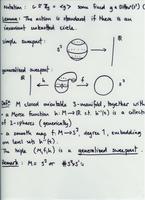 Notation: G ≅ Z_2 = <g> some fixed g ∈ Diff(S³)
Lemma: The action is standard if there is an
invariant unknotted circle.
simple sweepout:
S³
ℝ
generalized sweepout:
ℝ
h
f
S³
Def: M closed orientable 3-manifold, together with
- a Morse function h: M → ℝ st h⁻¹(x) is a collection
of 2-spheres (generically)
- a smooth map f: M → S³, degree 1, embedding
on level sets h⁻¹(x).
The triple (M, f, h) is a generalized sweepout.
Remark: M = S³ or # S²×S¹